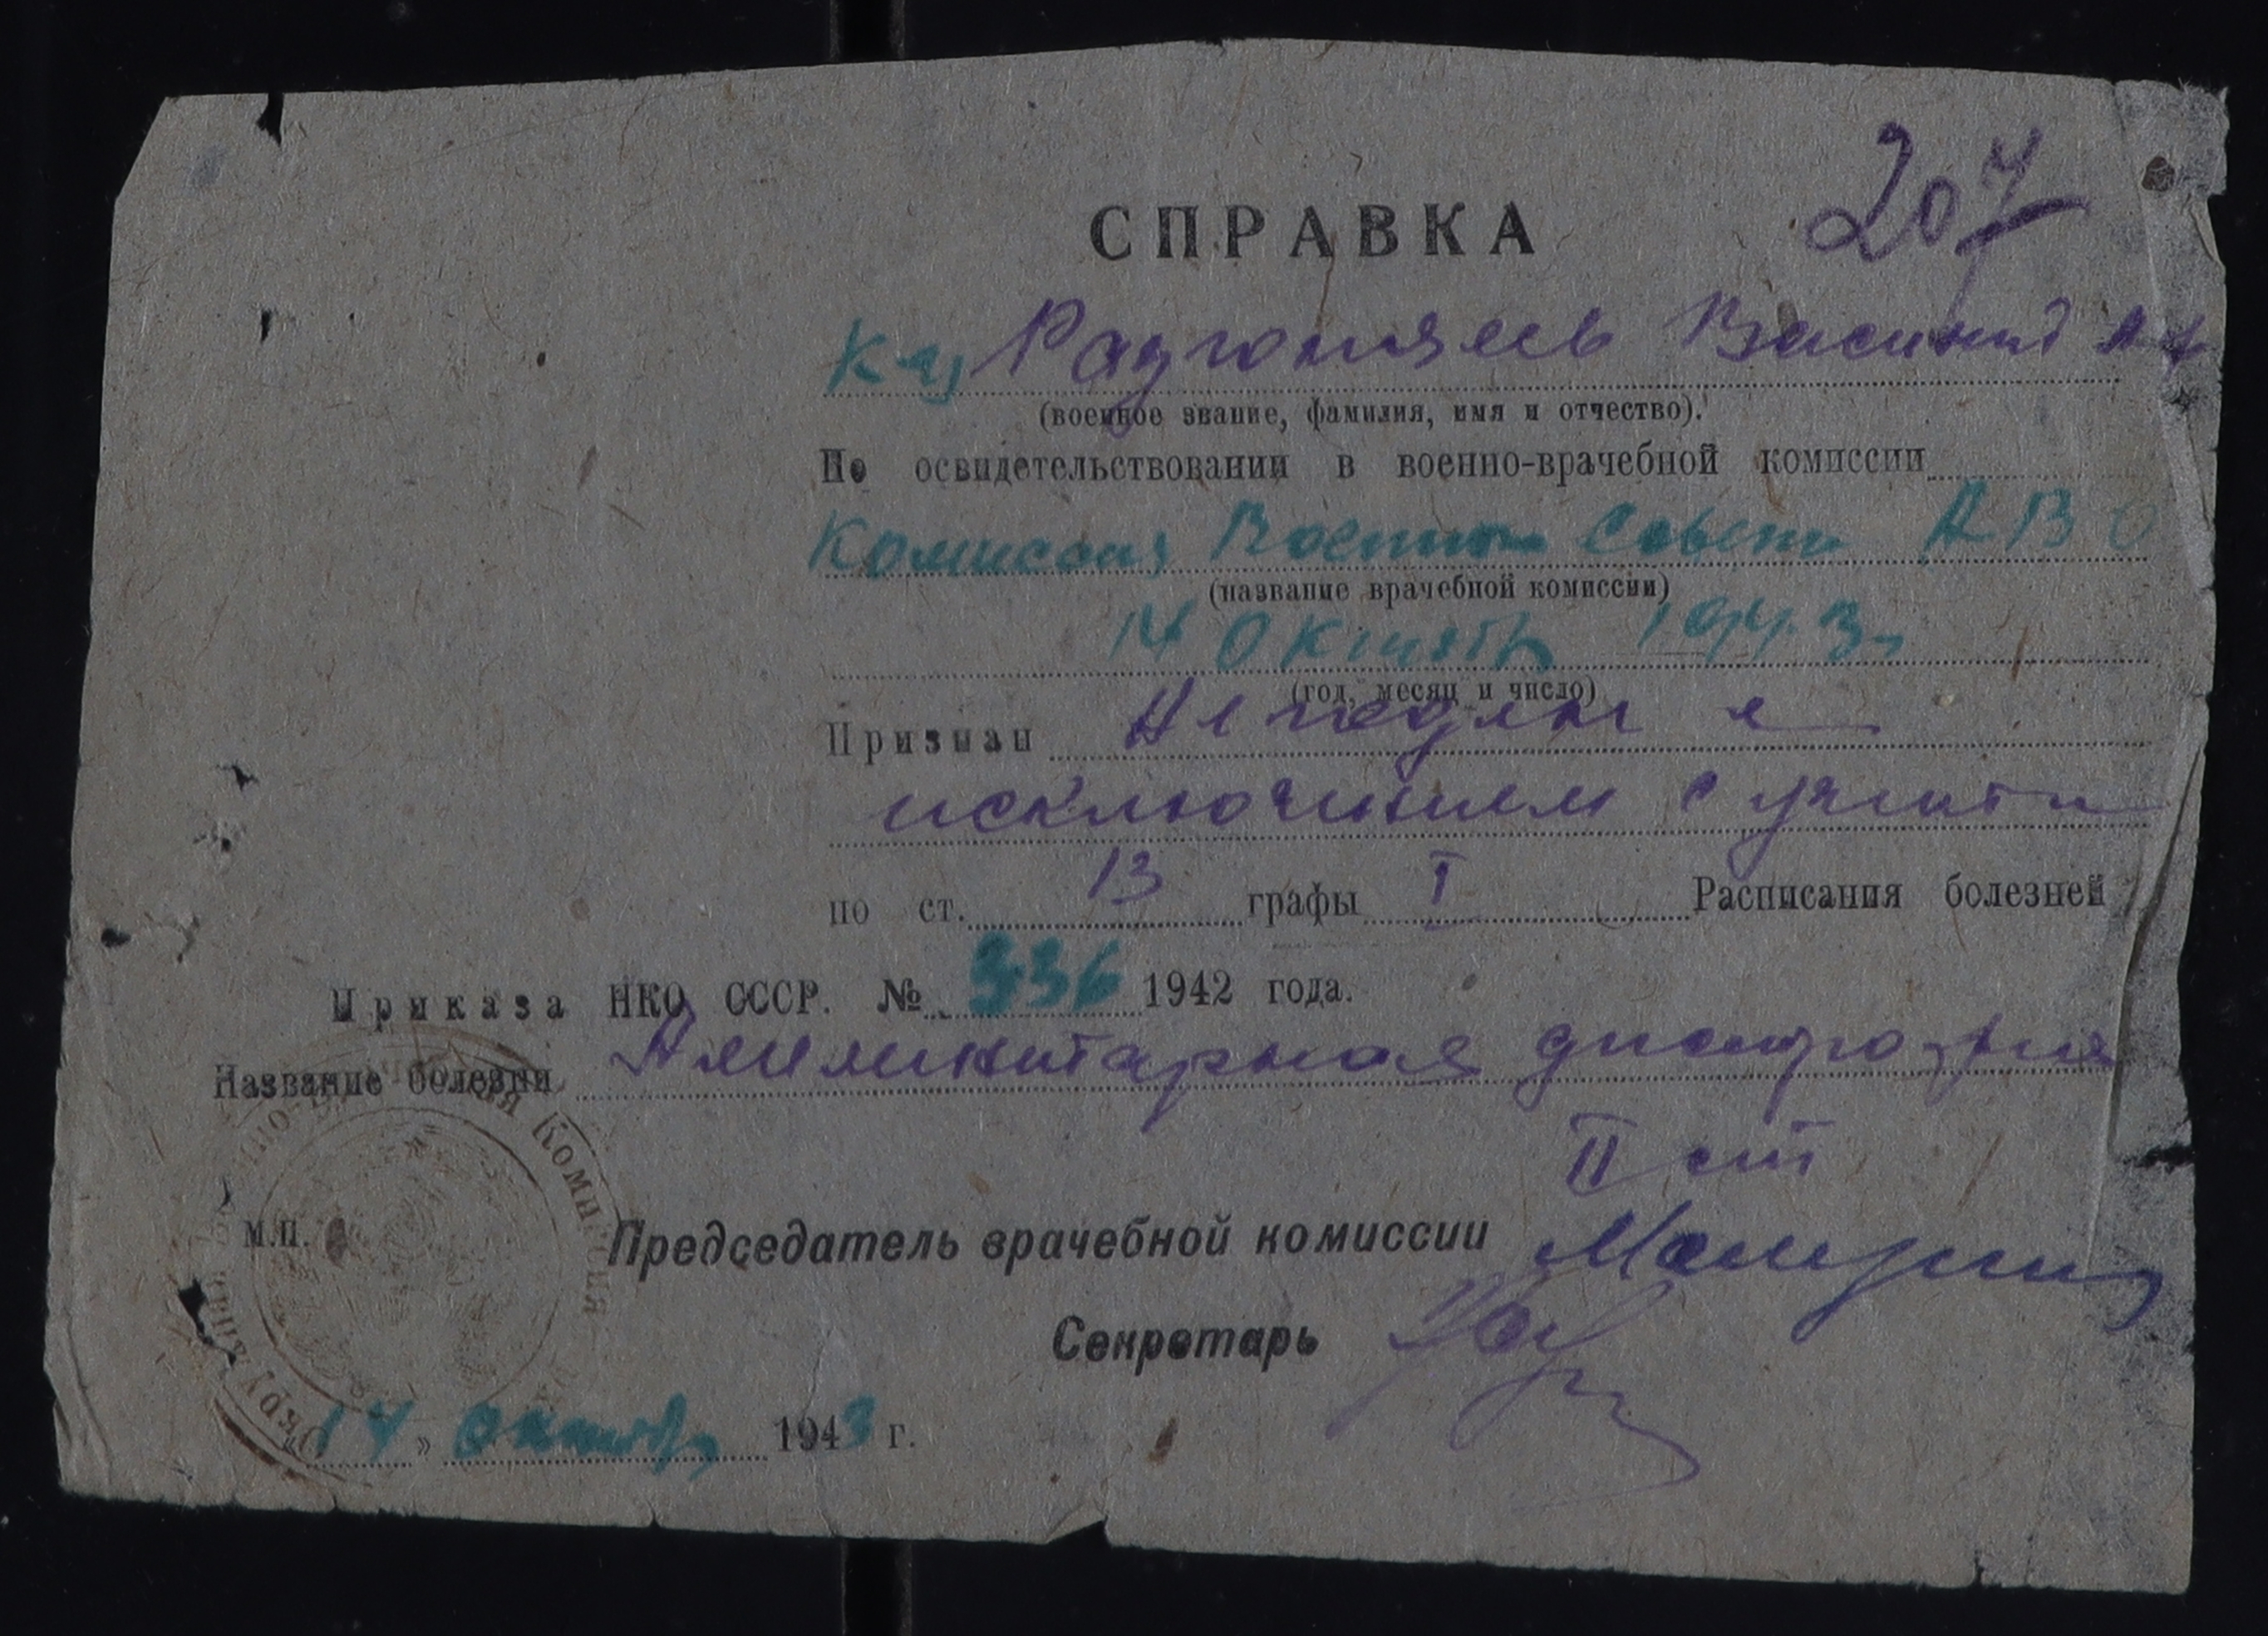 207
СПРАВКА
Василий
(военное звание, фамилия, имя и отчество).
По освидетельствовании в военно-врачебной комиссии
Комиссия Военного Совета АВО
(название врачебной комиссии)
14 Октября 1943
(год, месяц и число)
Признан Негоден с
исключением с учета
по ст. 13 графы I Расписания болезней
Приказа НКО СССР. № 336 1942 года.
Название болезни Алиментарная дистрофия
II ст
М.П. Председатель врачебной комиссии
Секретарь
«14» октября 1943 г.
Комиссия